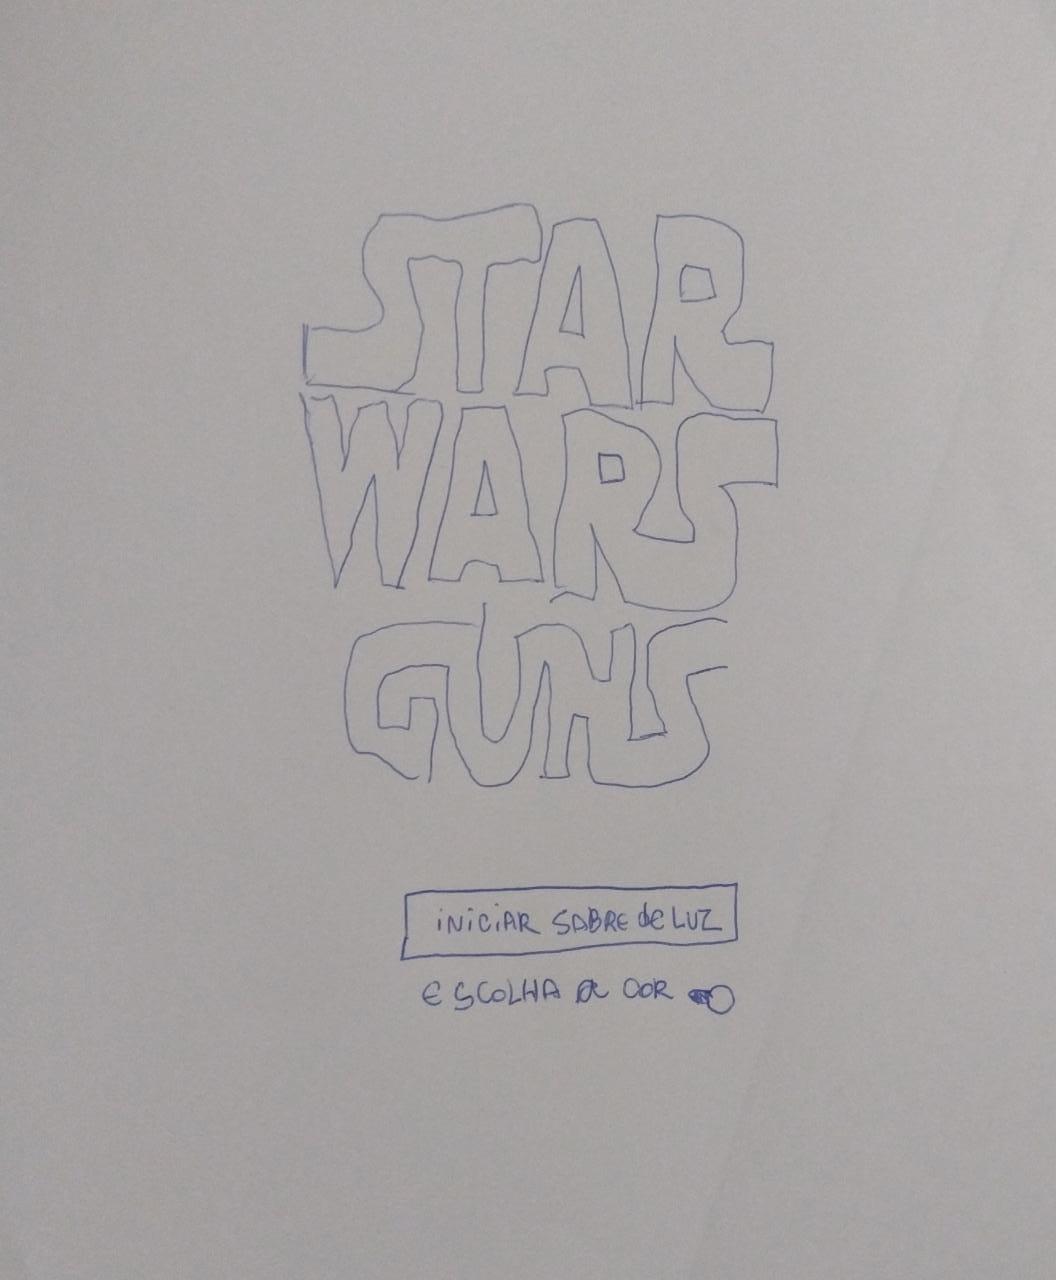 STAR
WARS
GUNS
iNiCiAR SABRE de LUZ
ESCOLHA A COR